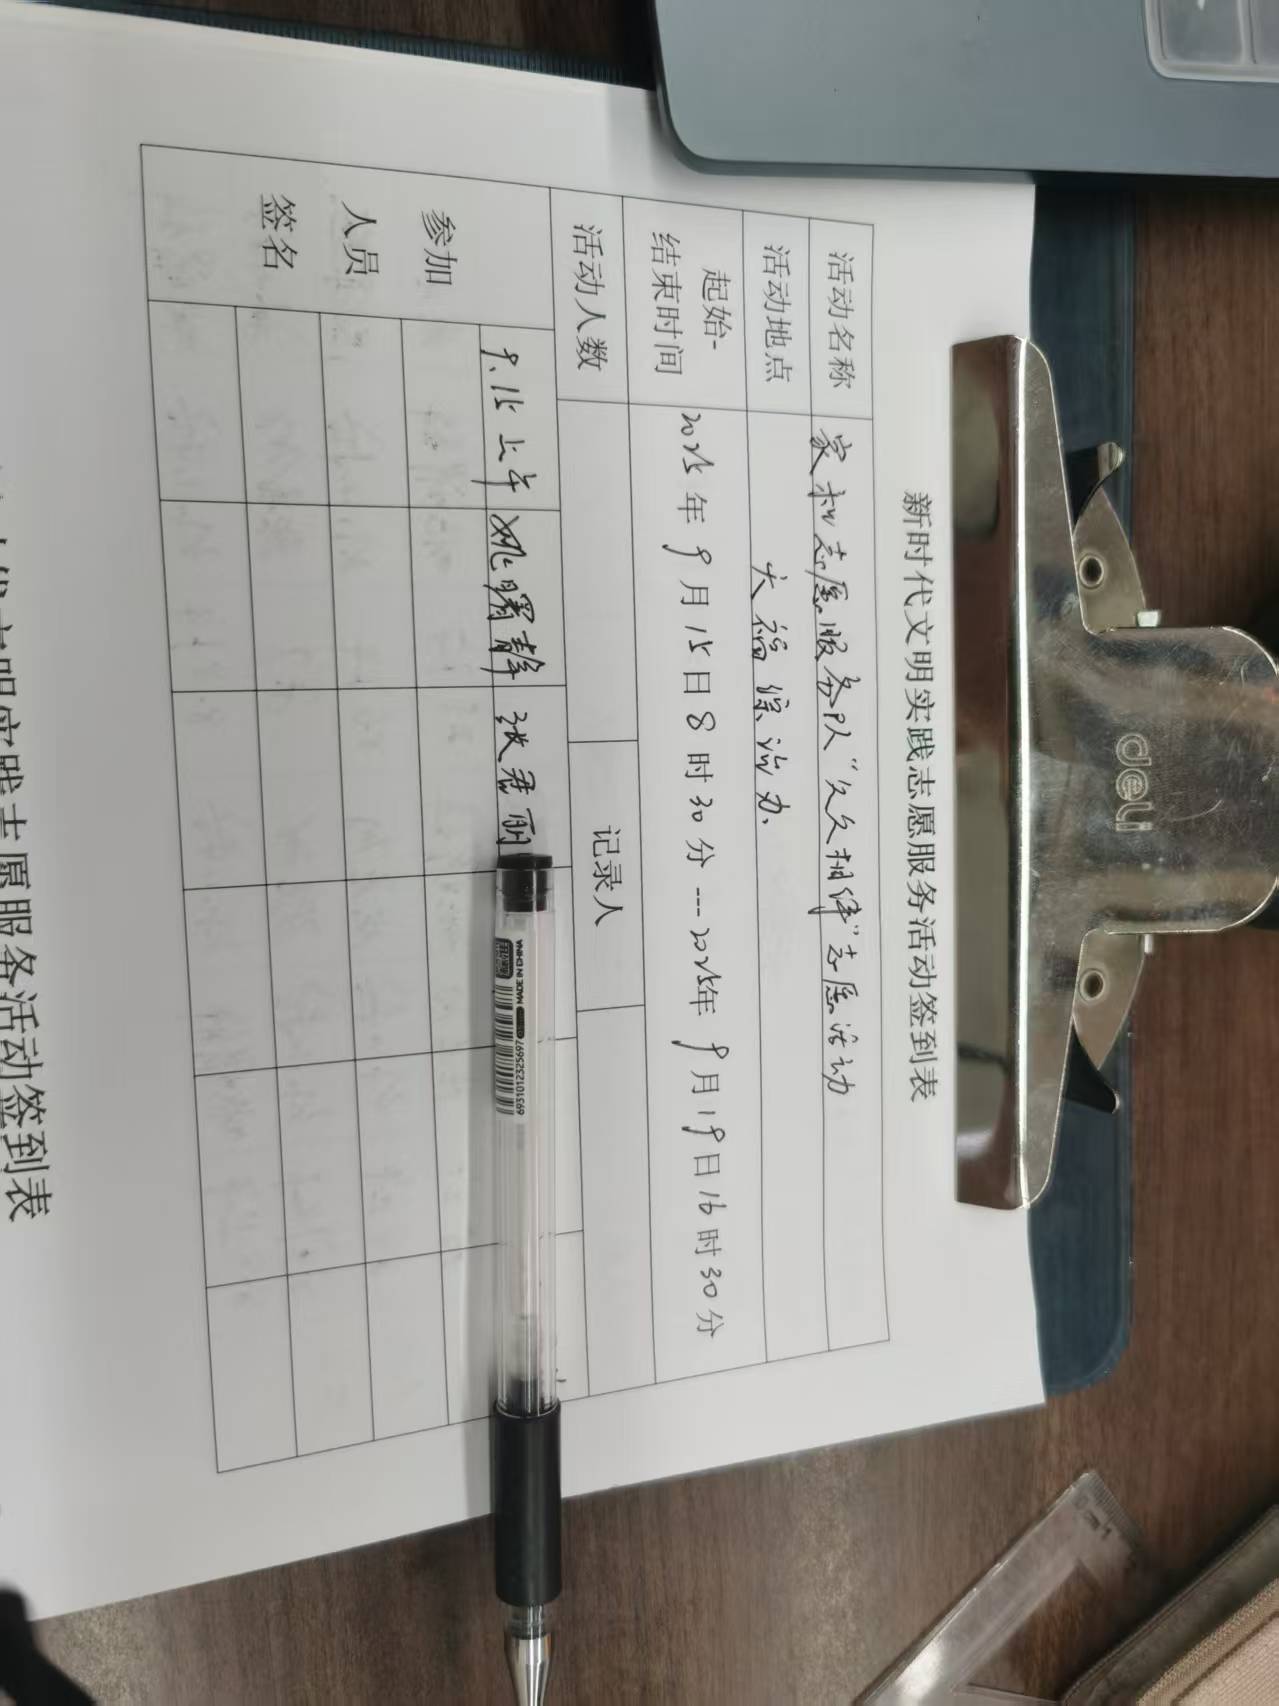 新时代文明实践志愿服务活动签到表
活动名称 家和志愿服务队“久久相伴”志愿活动
活动地点 大福综治办
起始-
结束时间
2025年9月15日8时30分---2025年9月19日16时30分
活动人数 记录人
参加
人员
签名
9.15上午 姚曙静 张君丽
deli
MADE IN CHINA
6931012325697
文明实践志愿服务活动签到表